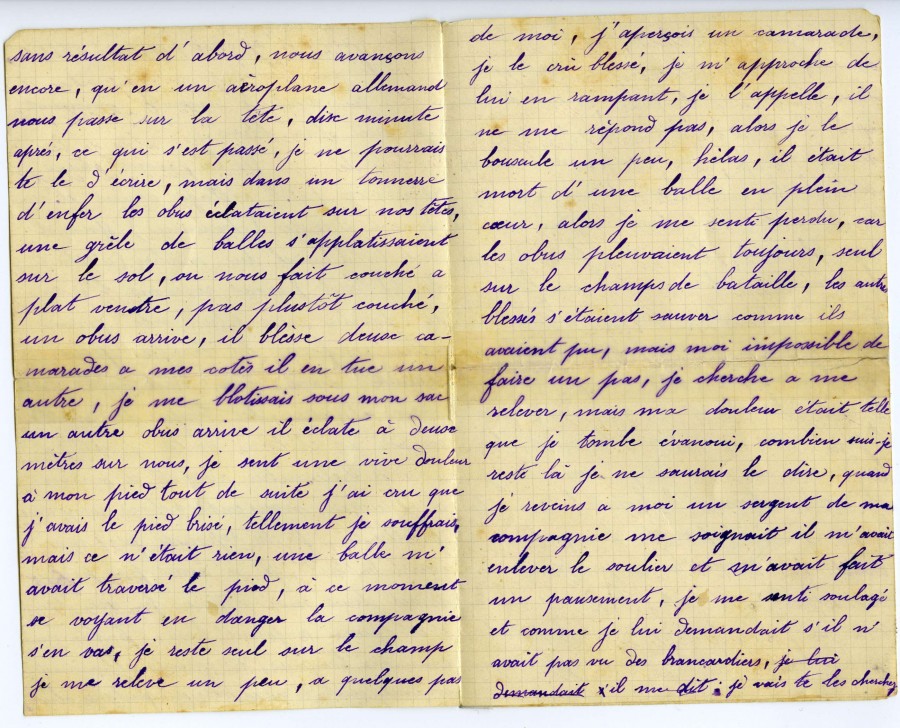 sans résultat d'abord, nous avançons
encore, qu'en un aéroplane allemand
nous passe sur la tête, disc minute
aprés, ce qui s'est passé, je ne pourrais
te le d'écrire, mais dans un tonnerre
d'enfer les obus éclataient sur nos têtes,
une grêle de balles s'applatissaient
sur le sol, on nous fait couché a
plat ventre, pas plustôt couché,
un obus arrive, il blèsse deuse ca-
marades a mes cotés il en tue un
autre, je me blotissais sous mon sac
un autre obus arrive il éclate à deuse
mètres sur nous, je sent une vive douleur
à mon pied tout de suite j'ai cru que
j'avais le pied brisé, tellement je souffrais,
mais ce n'était rien, une balle m'
avait traversé le pied, à ce moment
se voyant en danger la compagnie
s'en vas, je reste seul sur le champ
je me relève un peu, a quelques pas
de moi, j'aperçois un camarade,
je le crû blessé, je m'approche de
lui en rampant, je l'appelle, il
ne me répond pas, alors je le
bouscule un peu, hélas, il était
mort d'une balle en plein
cœur, alors je me senti perdu, car
les obus pleuvaient toujours, seul
sur le champs de bataille, les autre
blessés s'étaient sauver comme ils
avaient pu, mais moi impossible de
faire un pas, je cherche a me
relever, mais ma douleur était telle
que je tombe évanoui, combien suis-je
resté là je ne saurais le dire, quand
je reveins a moi un sergent de ma
compagnie me soignait il m'avait
enlever le soulier et m'avait fait
un pansement, je me senti soulagé
et comme je lui demandait s'il n'
avait pas vu des brancardiers, je lui
demandait s'il me dit : je vais te les chercher